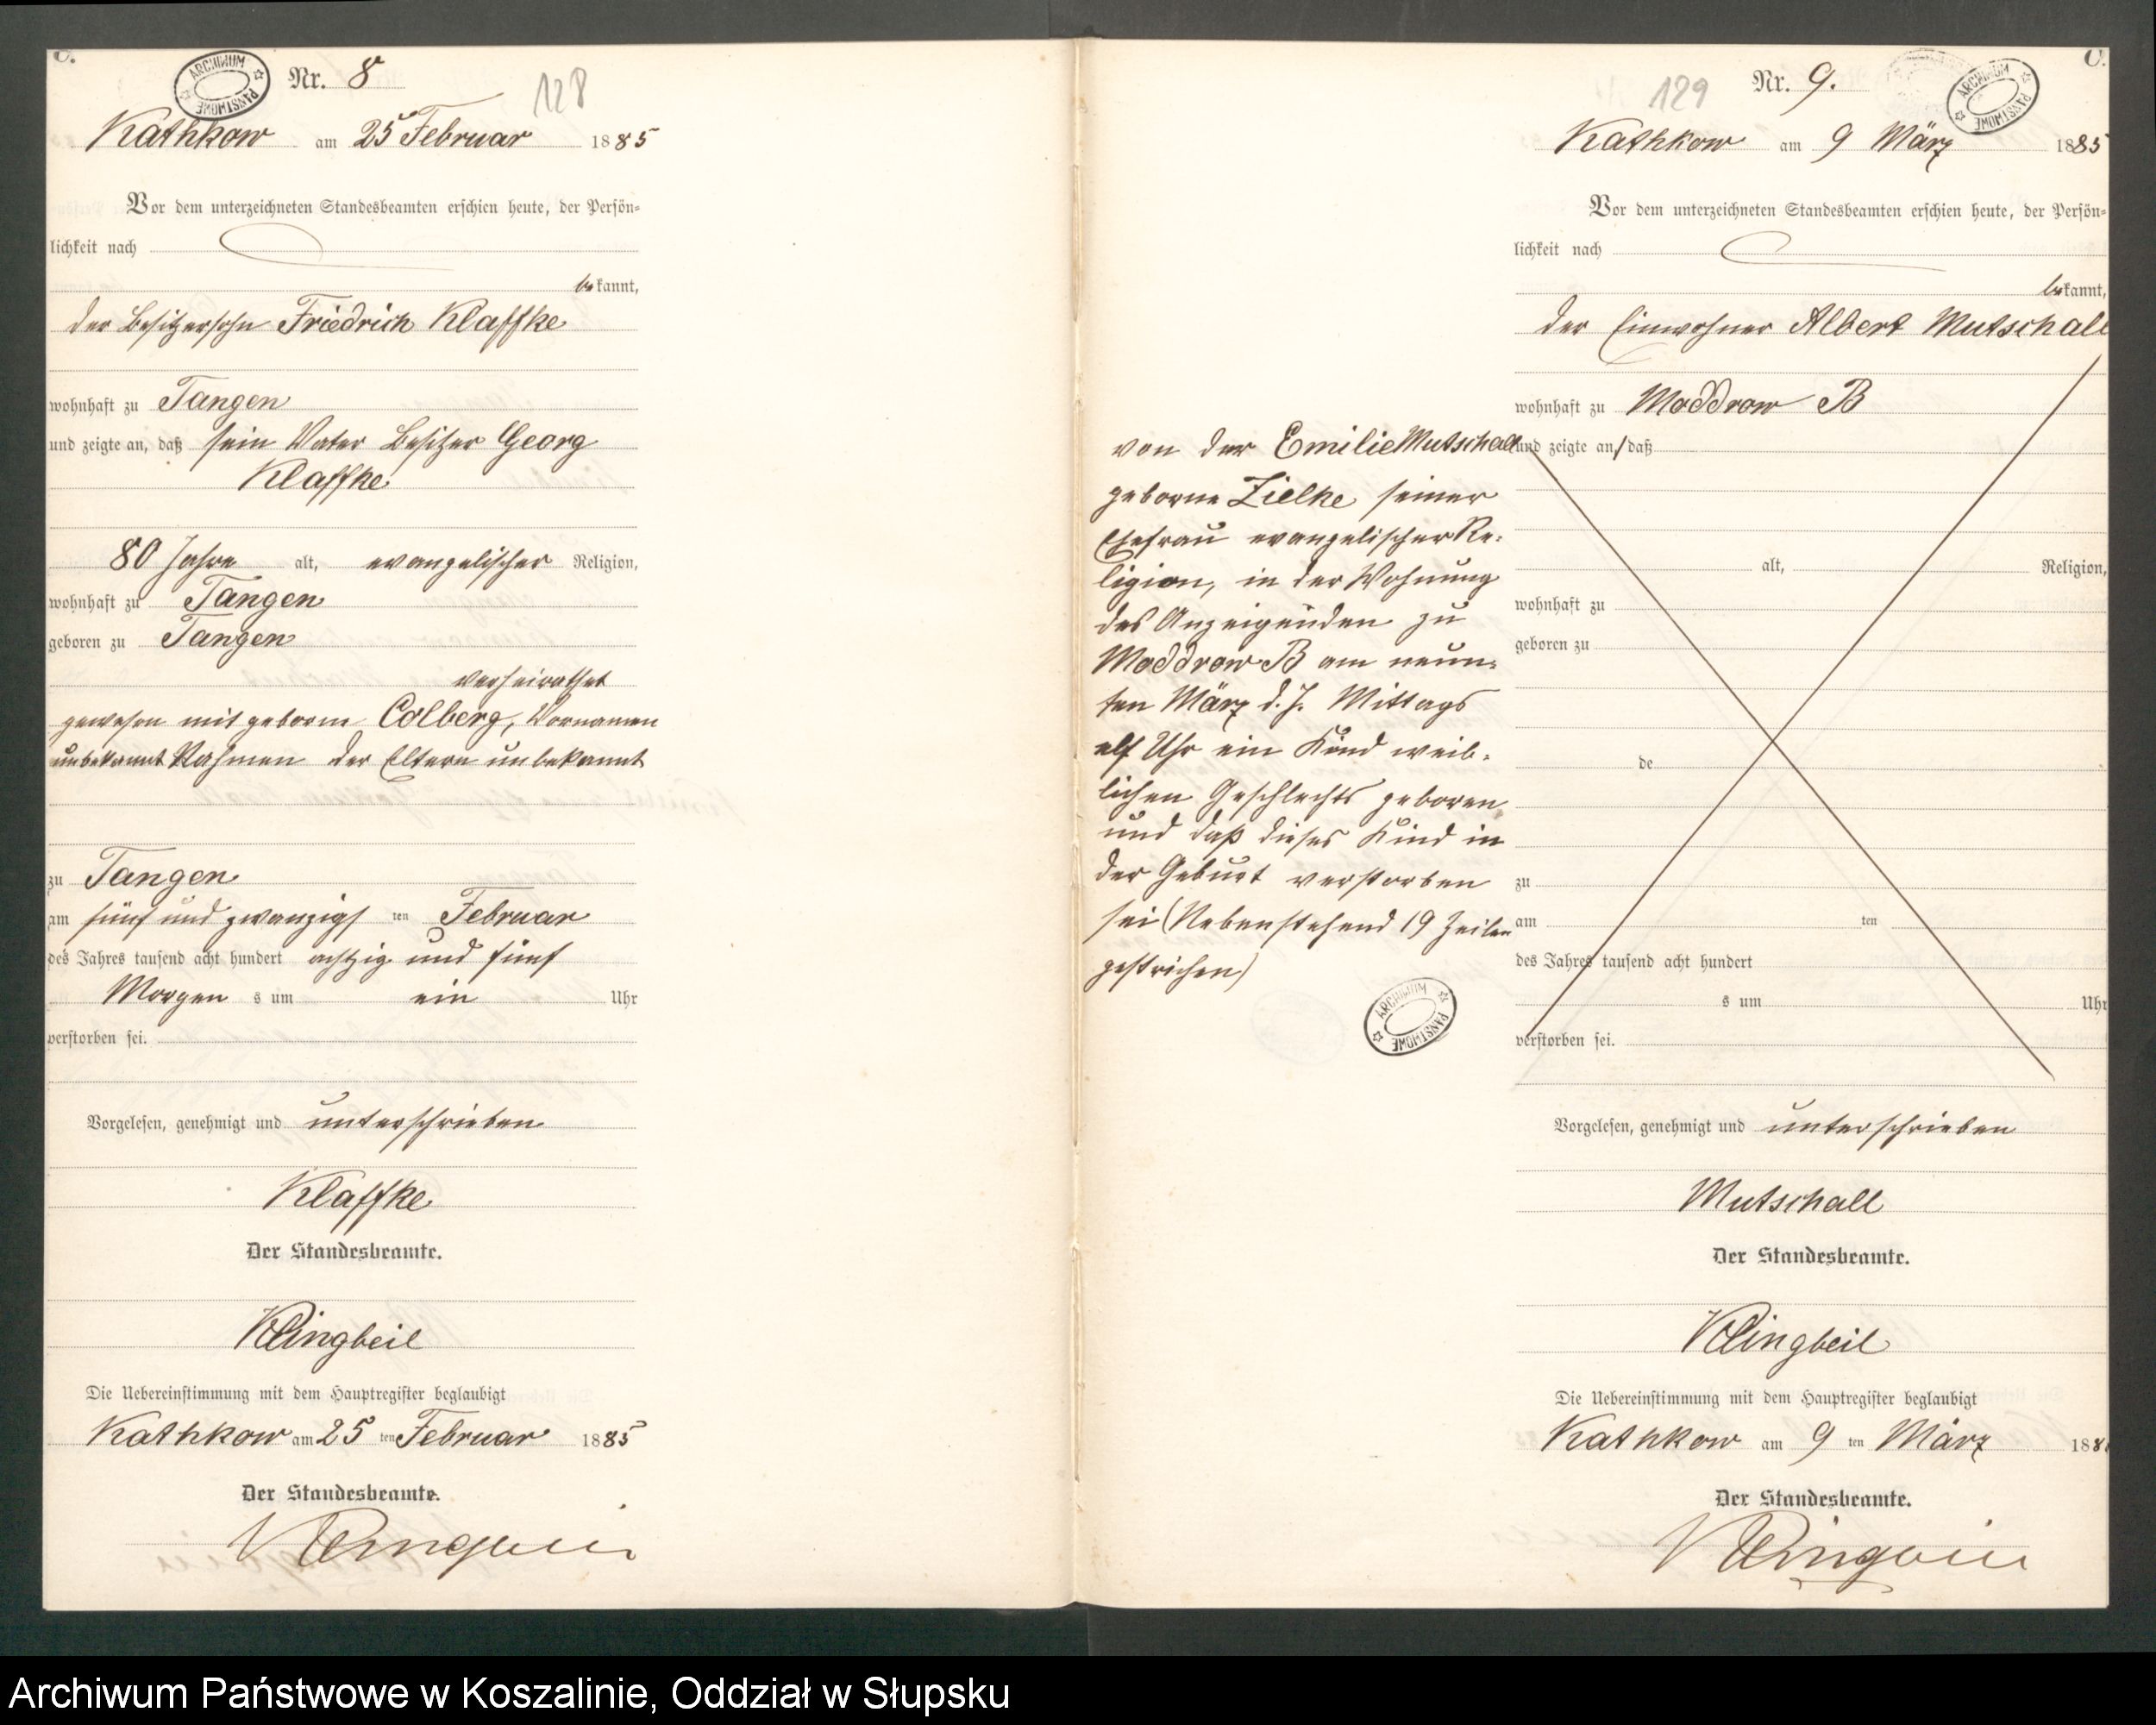 C.
ARCHIWUM PAŃSTWOWE
Nr. 8
128
Kathkow am 25 Februar 1885
Vor dem unterzeichneten Standesbeamten erschien heute, der Persön-
lichkeit nach
bekannt,
der Besitzersohn Friedrich Klaffke
wohnhaft zu Tangen
und zeigte an, daß sein Vater Besitzer Georg
Klaffke
80 Jahre alt, evangelischer Religion,
wohnhaft zu Tangen
geboren zu Tangen
verheirathet
gewesen mit geborne Colberg, Vornamen
unbekannt Nahmen der Eltern unbekannt
zu Tangen
am fünf und zwanzigs ten Februar
des Jahres tausend acht hundert achtzig und fünf
Morgen s um ein Uhr
verstorben sei.
Vorgelesen, genehmigt und unterschrieben
Klaffke
Der Standesbeamte.
Klingbeil
Die Uebereinstimmung mit dem Hauptregister beglaubigt
Kathkow am 25 ten Februar 1885
Der Standesbeamte.
Klingbeil
C.
129
Nr. 9.
ARCHIWUM PAŃSTWOWE
Kathkow am 9 März 1885
Vor dem unterzeichneten Standesbeamten erschien heute, der Persön-
lichkeit nach
bekannt,
der Einwohner Albert Mutschall
wohnhaft zu Moddrow B
und zeigte an, daß
von der Emilie Mutschall
geborne Zielke seiner
Ehefrau evangelischer Re-
ligion, in der Wohnung
des Anzeigenden zu
Moddrow B am neun-
ten März d. J. Mittags
elf Uhr ein Kind weib-
lichen Geschlechts geboren
und daß dieses Kind in
der Geburt verstorben
sei (Nebenstehend 19 Zeilen
gestrichen)
ARCHIWUM PAŃSTWOWE
alt, Religion,
wohnhaft zu
geboren zu
de
zu
am ten
des Jahres tausend acht hundert
s um Uhr
verstorben sei.
Vorgelesen, genehmigt und unterschrieben
Mutschall
Der Standesbeamte.
Klingbeil
Die Uebereinstimmung mit dem Hauptregister beglaubigt
Kathkow am 9 ten März 188
Der Standesbeamte.
Klingbeil
Archiwum Państwowe w Koszalinie, Oddział w Słupsku